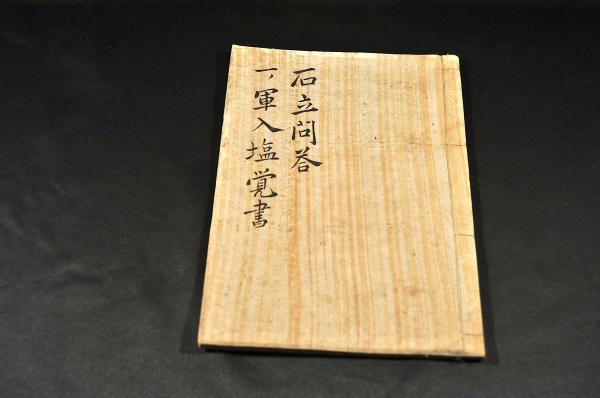 石立問答
一、軍入塩覚書